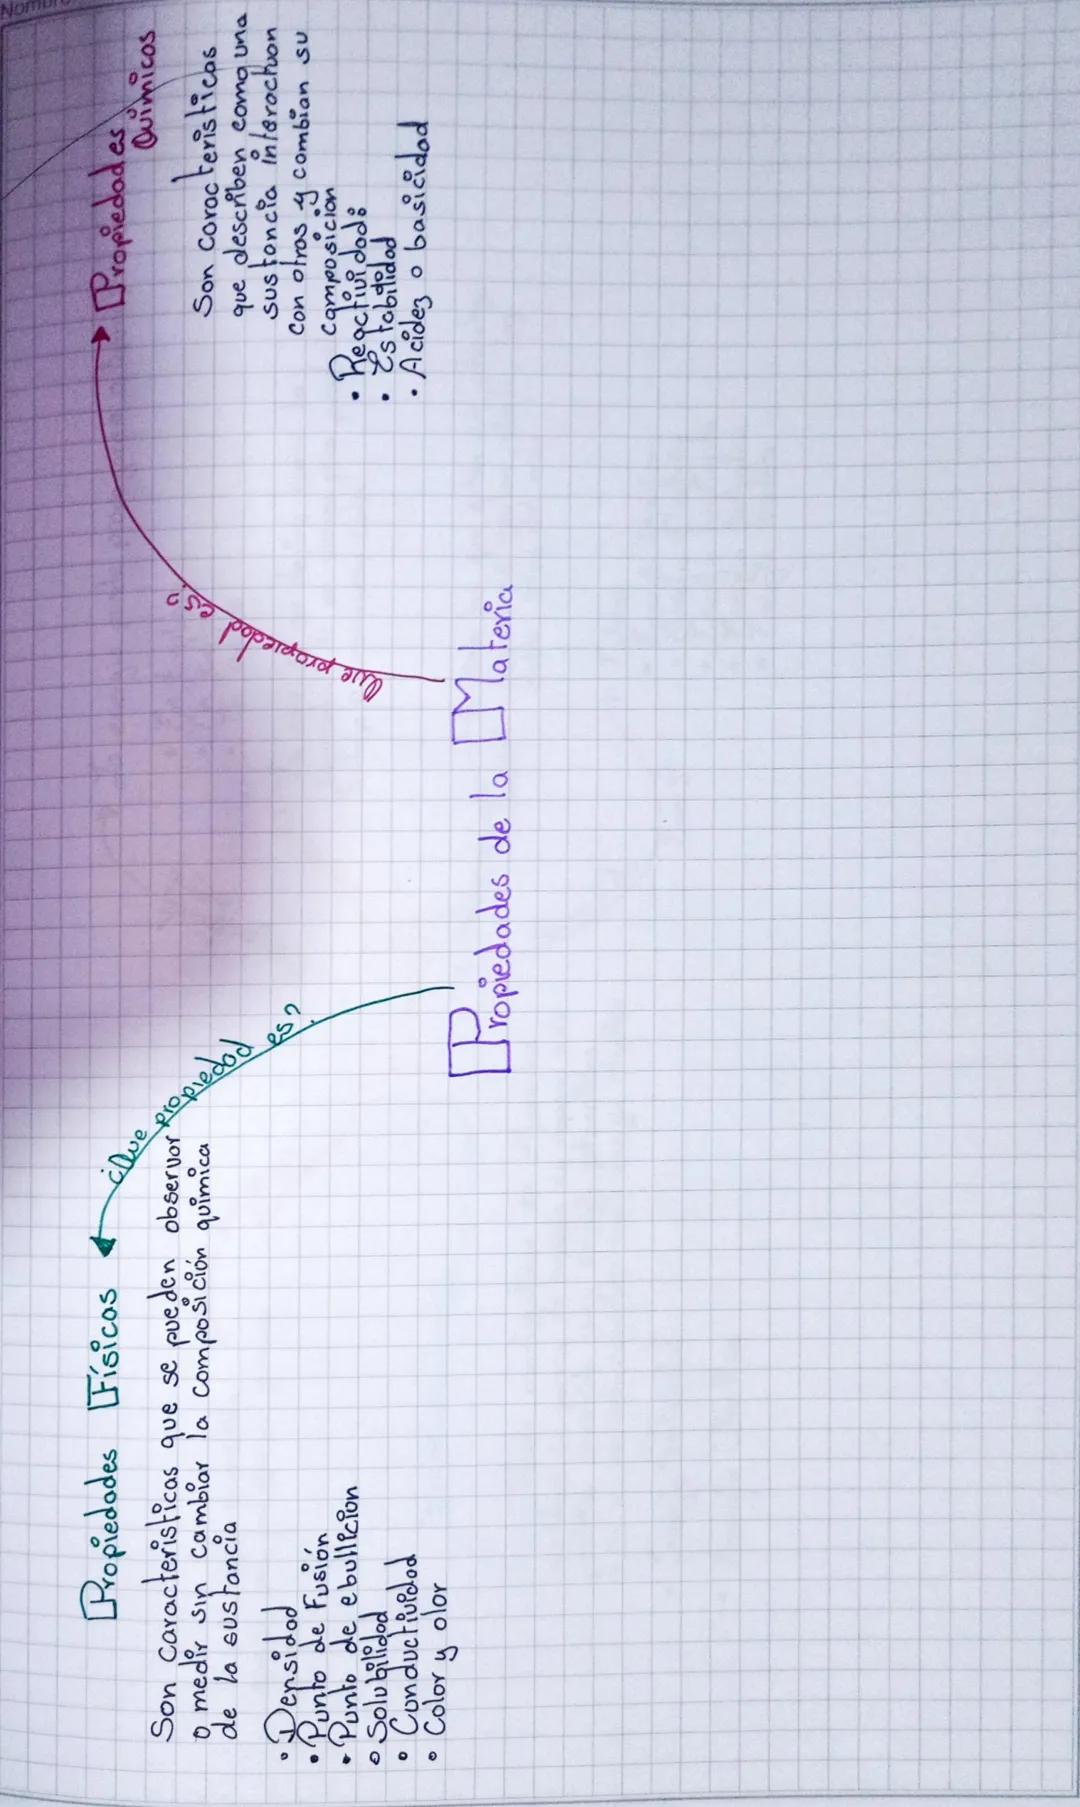 Nombre
Propiedades Físicas
¿Que propiedad es?
Son caracteristicas que se pueden observar
o medir sin cambiar la composición química
de la sustancia
• Densidad
• Punto de Fusión
• Punto de ebullicion
• Solubilidad
• Conductividad
• Color y olor
Propiedades de la Materia
Que propiedad es?
Propiedades
Químicas
Son caracteristicas
que describen como una
sustancia interactuan
con otras y cambian su
composicion
• Reactividad:
• Estabilidad
• Acidez o basicidad